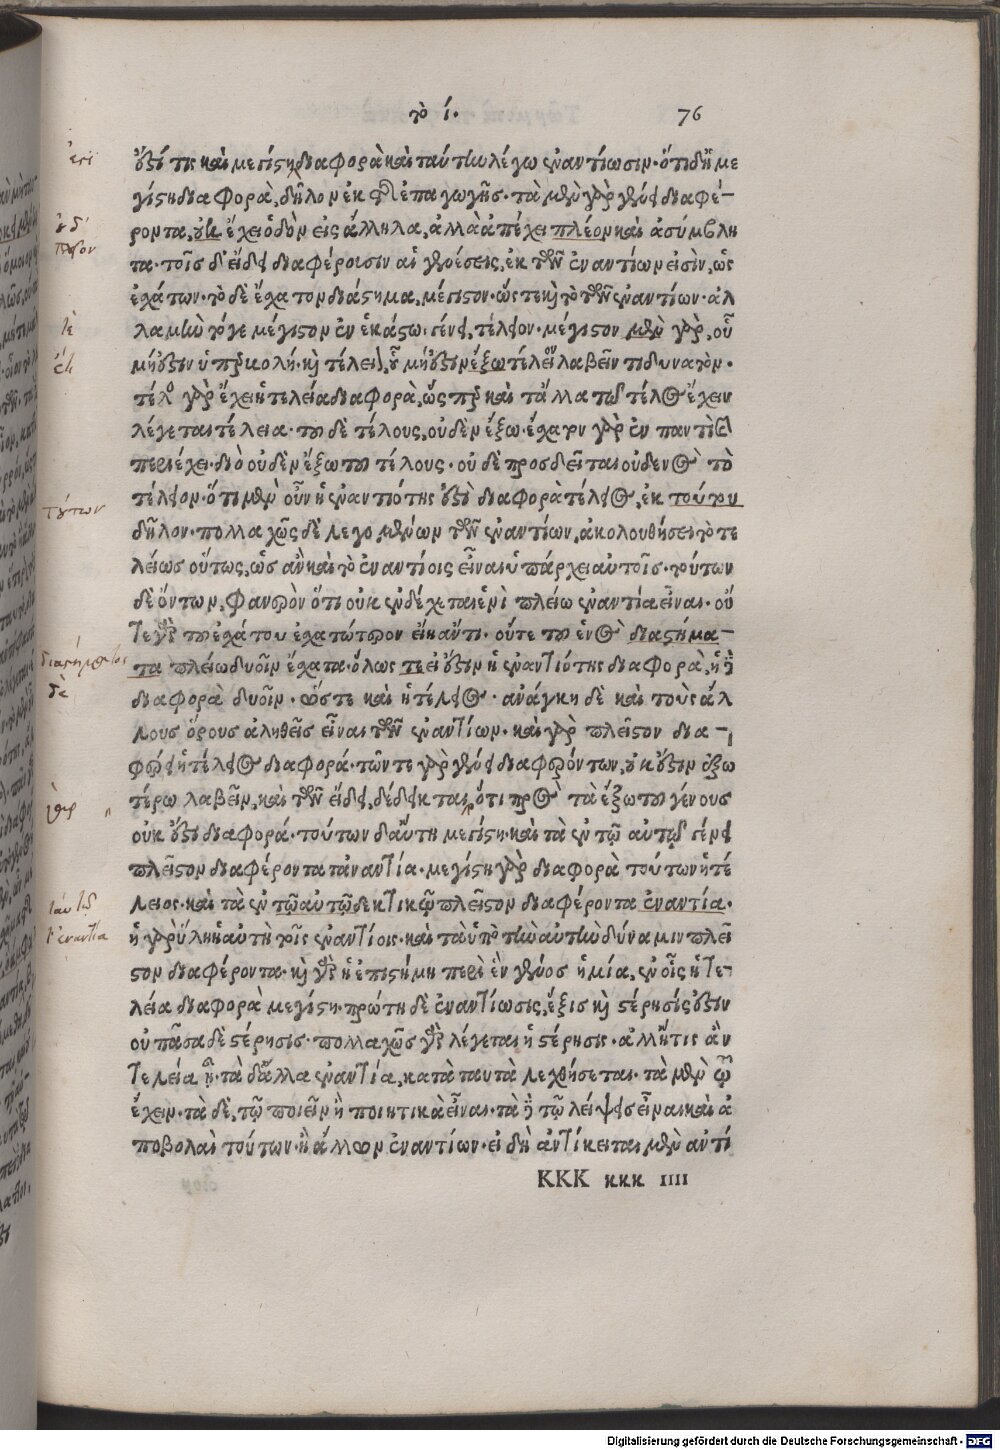 τὸ ί.
76
ἐστί τις καὶ μεγίστη διαφορὰ καὶ ταύτην λέγω ἐναντίωσιν· ὅτι δ' ἡ με
γίστη διαφορὰ, δῆλον ἐκ τῆς ἐπαγωγῆς· τὰ μὲν γὰρ γένει διαφέ-
ροντα, οὐκ ἔχει ὁδὸν εἰς ἄλληλα, ἀλλὰ ἀπέχει πλέον καὶ ἀσύμβλη
τα· τοῖς δ' εἴδει διαφέρουσιν αἱ γενέσεις, ἐκ τῶν ἐναντίων εἰσὶν, ὡς
ἐσχάτων· τὸ δὲ ἔσχατον διάστημα, μέγιστον· ὥστε καὶ τὸ τῶν ἐναντίων· ἀλ
λὰ μὴν τό γε μέγιστον ἐν ἑκάστῳ γένει, τέλειον· μέγιστον μὲν γὰρ, οὗ
μὴ ἔστιν ὑπερβολή· καὶ τέλειον, οὗ μὴ ἔστιν ἔξω τέλειον λαβεῖν τι δυνατὸν·
τέλος γὰρ ἔχει ἡ τελεία διαφορὰ, ὥσπερ καὶ τἄλλα τῷ τέλος ἔχειν
λέγεται τέλεια· τοῦ δὲ τέλους, οὐδὲν ἔξω· ἔσχατον γὰρ ἐν παντὶ καὶ
περιέχει· διὸ οὐδὲν ἔξω τοῦ τέλους· οὐδὲ προσδεῖται οὐδενὸς τὸ
τέλειον· ὅτι μὲν οὖν ἡ ἐναντιότης ἐστὶ διαφορὰ τέλειος, ἐκ τούτου
δῆλον· πολλαχῶς δὲ λεγομένων τῶν ἐναντίων, ἀκολουθήσει τὸ τε
λείως οὕτως, ὡς ἂν καὶ τὸ ἐναντίοις εἶναι ὑπάρχει αὐτοῖς· τούτων
δὲ ὄντων, φανερὸν ὅτι οὐκ ἐνδέχεται ἑνὶ πλείω ἐναντία εἶναι· οὔ
τε γὰρ τοῦ ἐσχάτου ἐσχατώτερον εἴη ἄν τι· οὔτε τοῦ ἑνὸς διαστήμα-
τα πλείω δυοῖν ἔσχατα· ὅλως τε εἰ ἔστιν ἡ ἐναντιότης διαφορὰ, ἡ δὲ
διαφορὰ δυοῖν· ὥστε καὶ ἡ τέλειος· ἀνάγκη δὲ καὶ τοὺς ἄλ
λους ὅρους ἀληθεῖς εἶναι τῶν ἐναντίων· καὶ γὰρ πλεῖστον δια-
φέρει ἡ τέλειος διαφορά· τῶν τε γὰρ γένει διαφερόντων, οὐκ ἔστιν ἐξω
τέρω λαβεῖν, καὶ τῶν εἴδει, δέδεικται, ὅτι πρὸς τὰ ἔξω τοῦ γένους
οὐκ ἔστι διαφορά· τούτων δ' αὕτη μεγίστη· καὶ τὰ ἐν τῷ αὐτῷ γένει
πλεῖστον διαφέροντα τἀναντία· μεγίστη γὰρ διαφορὰ τούτων ἡ τέ
λειος· καὶ τὰ ἐν τῷ αὐτῷ δεκτικῷ πλεῖστον διαφέροντα ἐναντία·
ἡ γὰρ ὕλη ἡ αὐτὴ τοῖς ἐναντίοις· καὶ τὰ ὑπὸ τὴν αὐτὴν δύναμιν πλεῖ
στον διαφέροντα· καὶ γὰρ ἡ ἐπιστήμη περὶ ἓν γένος ἡ μία, ἐν οἷς ἡ τε-
λεία διαφορὰ μεγίστη· πρώτη δὲ ἐναντίωσις, ἕξις καὶ στέρησίς ἐστιν
οὐ πᾶσα δὲ στέρησις· πολλαχῶς γὰρ λέγεται ἡ στέρησις· ἀλλ' ἥτις ἂν
τελεία ᾖ· τὰ δ' ἄλλα ἐναντία, κατὰ ταυτὰ λεχθήσεται· τὰ μὲν τῷ
ἔχειν· τὰ δὲ, τῷ ποιεῖν ἢ ποιητικὰ εἶναι· τὰ δὲ τῷ λείψεις εἶναι καὶ ἀ
ποβολαὶ τούτων ἢ ἄλλων ἐναντίων· εἰ δὴ ἀντίκειται μὲν ἀντί
KKK κκκ IIII
τούτων
διαστήματος
δὲ
ἐναντία
Digitalisierung gefördert durch die Deutsche Forschungsgemeinschaft - DFG